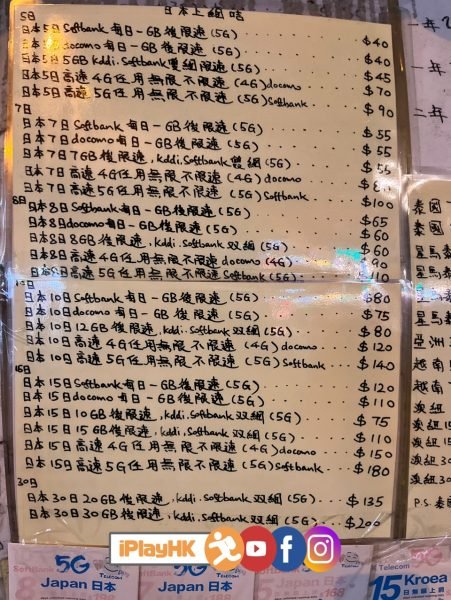 日本上網咭
5日
日本5日Softbank每日-GB後限速(5G) $40
日本5日docomo每日-GB後限速(5G) $40
日本5日5GB kddi.Softbank雙網限速(5G) $45
日本5日高速4G任用無限不限速(4G)docomo $70
日本5日高速5G任用無限不限速(5G)Softbank $90
7日
日本7日Softbank每日-GB後限速(5G) $55
日本7日docomo每日-GB後限速(5G) $55
日本7日7GB後限速,kddi.Softbank雙網(5G) $55
日本7日高速4G任用無限不限速(4G)docomo $80
日本7日高速5G任用無限不限速(5G)Softbank $100
8日
日本8日Softbank每日-GB後限速(5G) $65
日本8日docomo每日-GB後限速(5G) $60
日本8日8GB後限速,kddi.Softbank双網(5G) $60
日本8日高速4G任用無限不限速docomo(4G) $90
日本8日高速5G任用無限不限速Softbank(5G) $110
10日
日本10日Softbank每日-GB後限速(5G) $80
日本10日docomo每日-GB後限速(5G) $75
日本10日12GB後限速,kddi.Softbank双網(5G) $80
日本10日高速4G任用無限不限速(4G)docomo $120
日本10日高速5G任用無限不限速(5G)Softbank $140
15日
日本15日Softbank每日-GB後限速(5G) $120
日本15日docomo每日-GB後限速(5G) $110
日本15日10GB後限速,kddi.Softbank双網(5G) $75
日本15日15GB後限速,kddi.Softbank双網(5G) $110
日本15日高速4G任用無限不限速(4G)docomo $150
日本15日高速5G任用無限不限速(5G)Softbank $180
30日
日本30日20GB後限速,kddi.Softbank双網(5G) $135
日本30日30GB後限速,kddi.Softbank双網(5G) $200
一年
二年
泰國
泰國
星馬
星馬
星馬
亞洲
越南
越南
澳紐
澳紐
澳紐30
P.S.泰
iPlayHK
5G
Japan 日本
5G
Japan 日本
Japan 日本
Telecom
15 Kroea
日無限上網